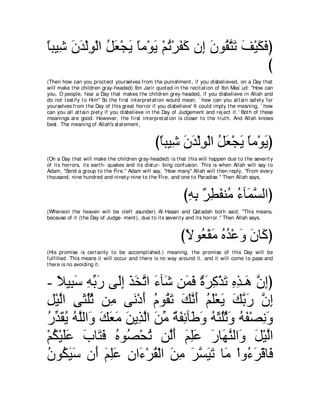 (فَكَيْفَ تَتَّقُونَ إِن كَفَرْتُمْ يَوْماً يَجْعَلُ الْوِلْدَنَ شِيباً
)
(Then how can you proctect yourselves from the punishment, if you disbelieved, on a Day that
will make the children gray-headed) Ibn Jarir quoted in the recitation of Ibn Mas`ud: "How can
you, O people, fear a Day that makes the children grey-headed, if you disbelieve in Allah and
do not testify to Him'' So the first interpretation would mean, `how can you attain safety for
yourselves from the Day of this great horror if you disbelieve' It could imply the meaning, `how
can you all attain piety if you disbelieve in the Day of Judgement and reject it.' Both of these
meanings are good. However, the first interpretation is closer to the truth. And Allah knows
best. The meaning of Allah's statement,
(يَوْماً يَجْعَلُ الْوِلْدَنَ شِيباً)
(On a Day that will make the children gray-headed) is that this will happen due to the severity
of its horrors, its earth- quakes and its disturbing confusion. This is when Allah will say to
Adam, "Send a group to the Fire.'' Adam will say, "How many'' Allah will then reply, "From every
thousand, nine hundred and ninety-nine to the Fire, and one to Paradise.'' Then Allah says,
(السَّمَآءُ مُنفَطِرٌ بِهِ)
(Whereon the heaven will be cleft asunder) Al-Hasan and Qatadah both said, "This means,
because of it (the Day of Judgement), due to its severity and its horror.'' Then Allah says,
(كَانَ وَعْدُهُ مَفْعُولاً)
(His promise is certainly to be accomplished.) meaning, the promise of this Day will be
fulfilled. This means it will occur and there is no way around it, and it will come to pass and
there is no avoiding it.
(إِنَّ هَـذِهِ تَذْكِرَةٌ فَمَن شَآءَ اتَّخَذَ إِلَى رَبِّهِ سَبِيلاً -
إِنَّ رَبَّكَ يَعْلَمُ أَنَّكَ تَقُومُ أَدْنَى مِن ثُلُثَىِ الَّيْلِ
وَنِصْفَهُ وَثُلُثَهُ وَطَآئِفَةٌ مِّنَ الَّذِينَ مَعَكَ وَاللَّهُ يُقَدِّرُ
الَّيْلَ وَالنَّهَارَ عَلِمَ أَلَّن تُحْصُوهُ فَتَابَ عَلَيْكُمْ
فَاقْرَءُواْ مَا تَيَسَّرَ مِنَ الْقُرْءَانِ عَلِمَ أَن سَيَكُونُ